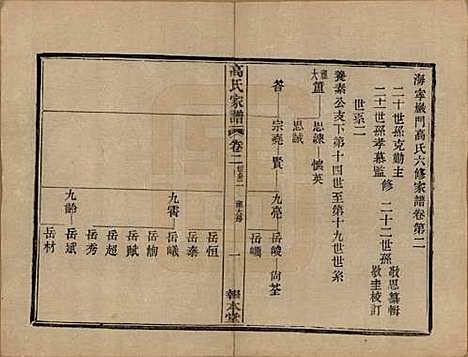 海寧巖門高氏六修家譜卷第二
二十世孫克勤主
二十一世孫孝慕監
修
二十二世孫
敬思纂輯
敬圭校訂
世系二
養素公支下第十四世至第十九世世系
大
董
思諫
懷英
思誠
答
宗堯
賢
九亮
岳峻
尚荃
岳嶹
高氏家譜
卷二
一
報本堂
岳恒
九霄
岳巇
岳泰
岳綯
岳賦
岳超
岳秀
九齡
岳斌
岳材